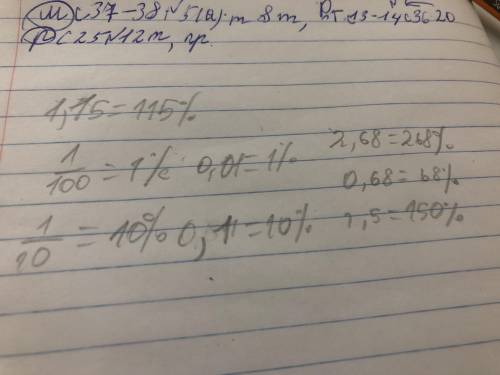 М с 37-38 №5(а).т 8т,
с 25 №12т, пр.
1,15=115%
1/100 = 1% 0,01=1% 2,68=268%
0,68=68%
1/10 = 10% 0,1=10% 1,5=150%